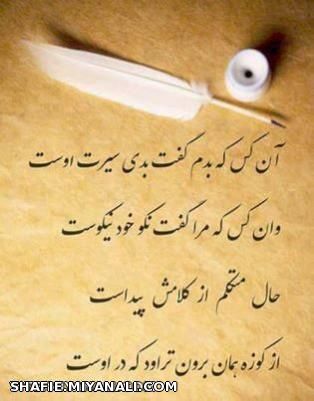 آن کس که بدم گفت بدی سیرت اوست
وان کس که مرا گفت نکو خود نیکوست
حال متکلم از کلامش پیداست
از کوزه همان برون تراود که در اوست
SHAFIE.MIYANALI.COM